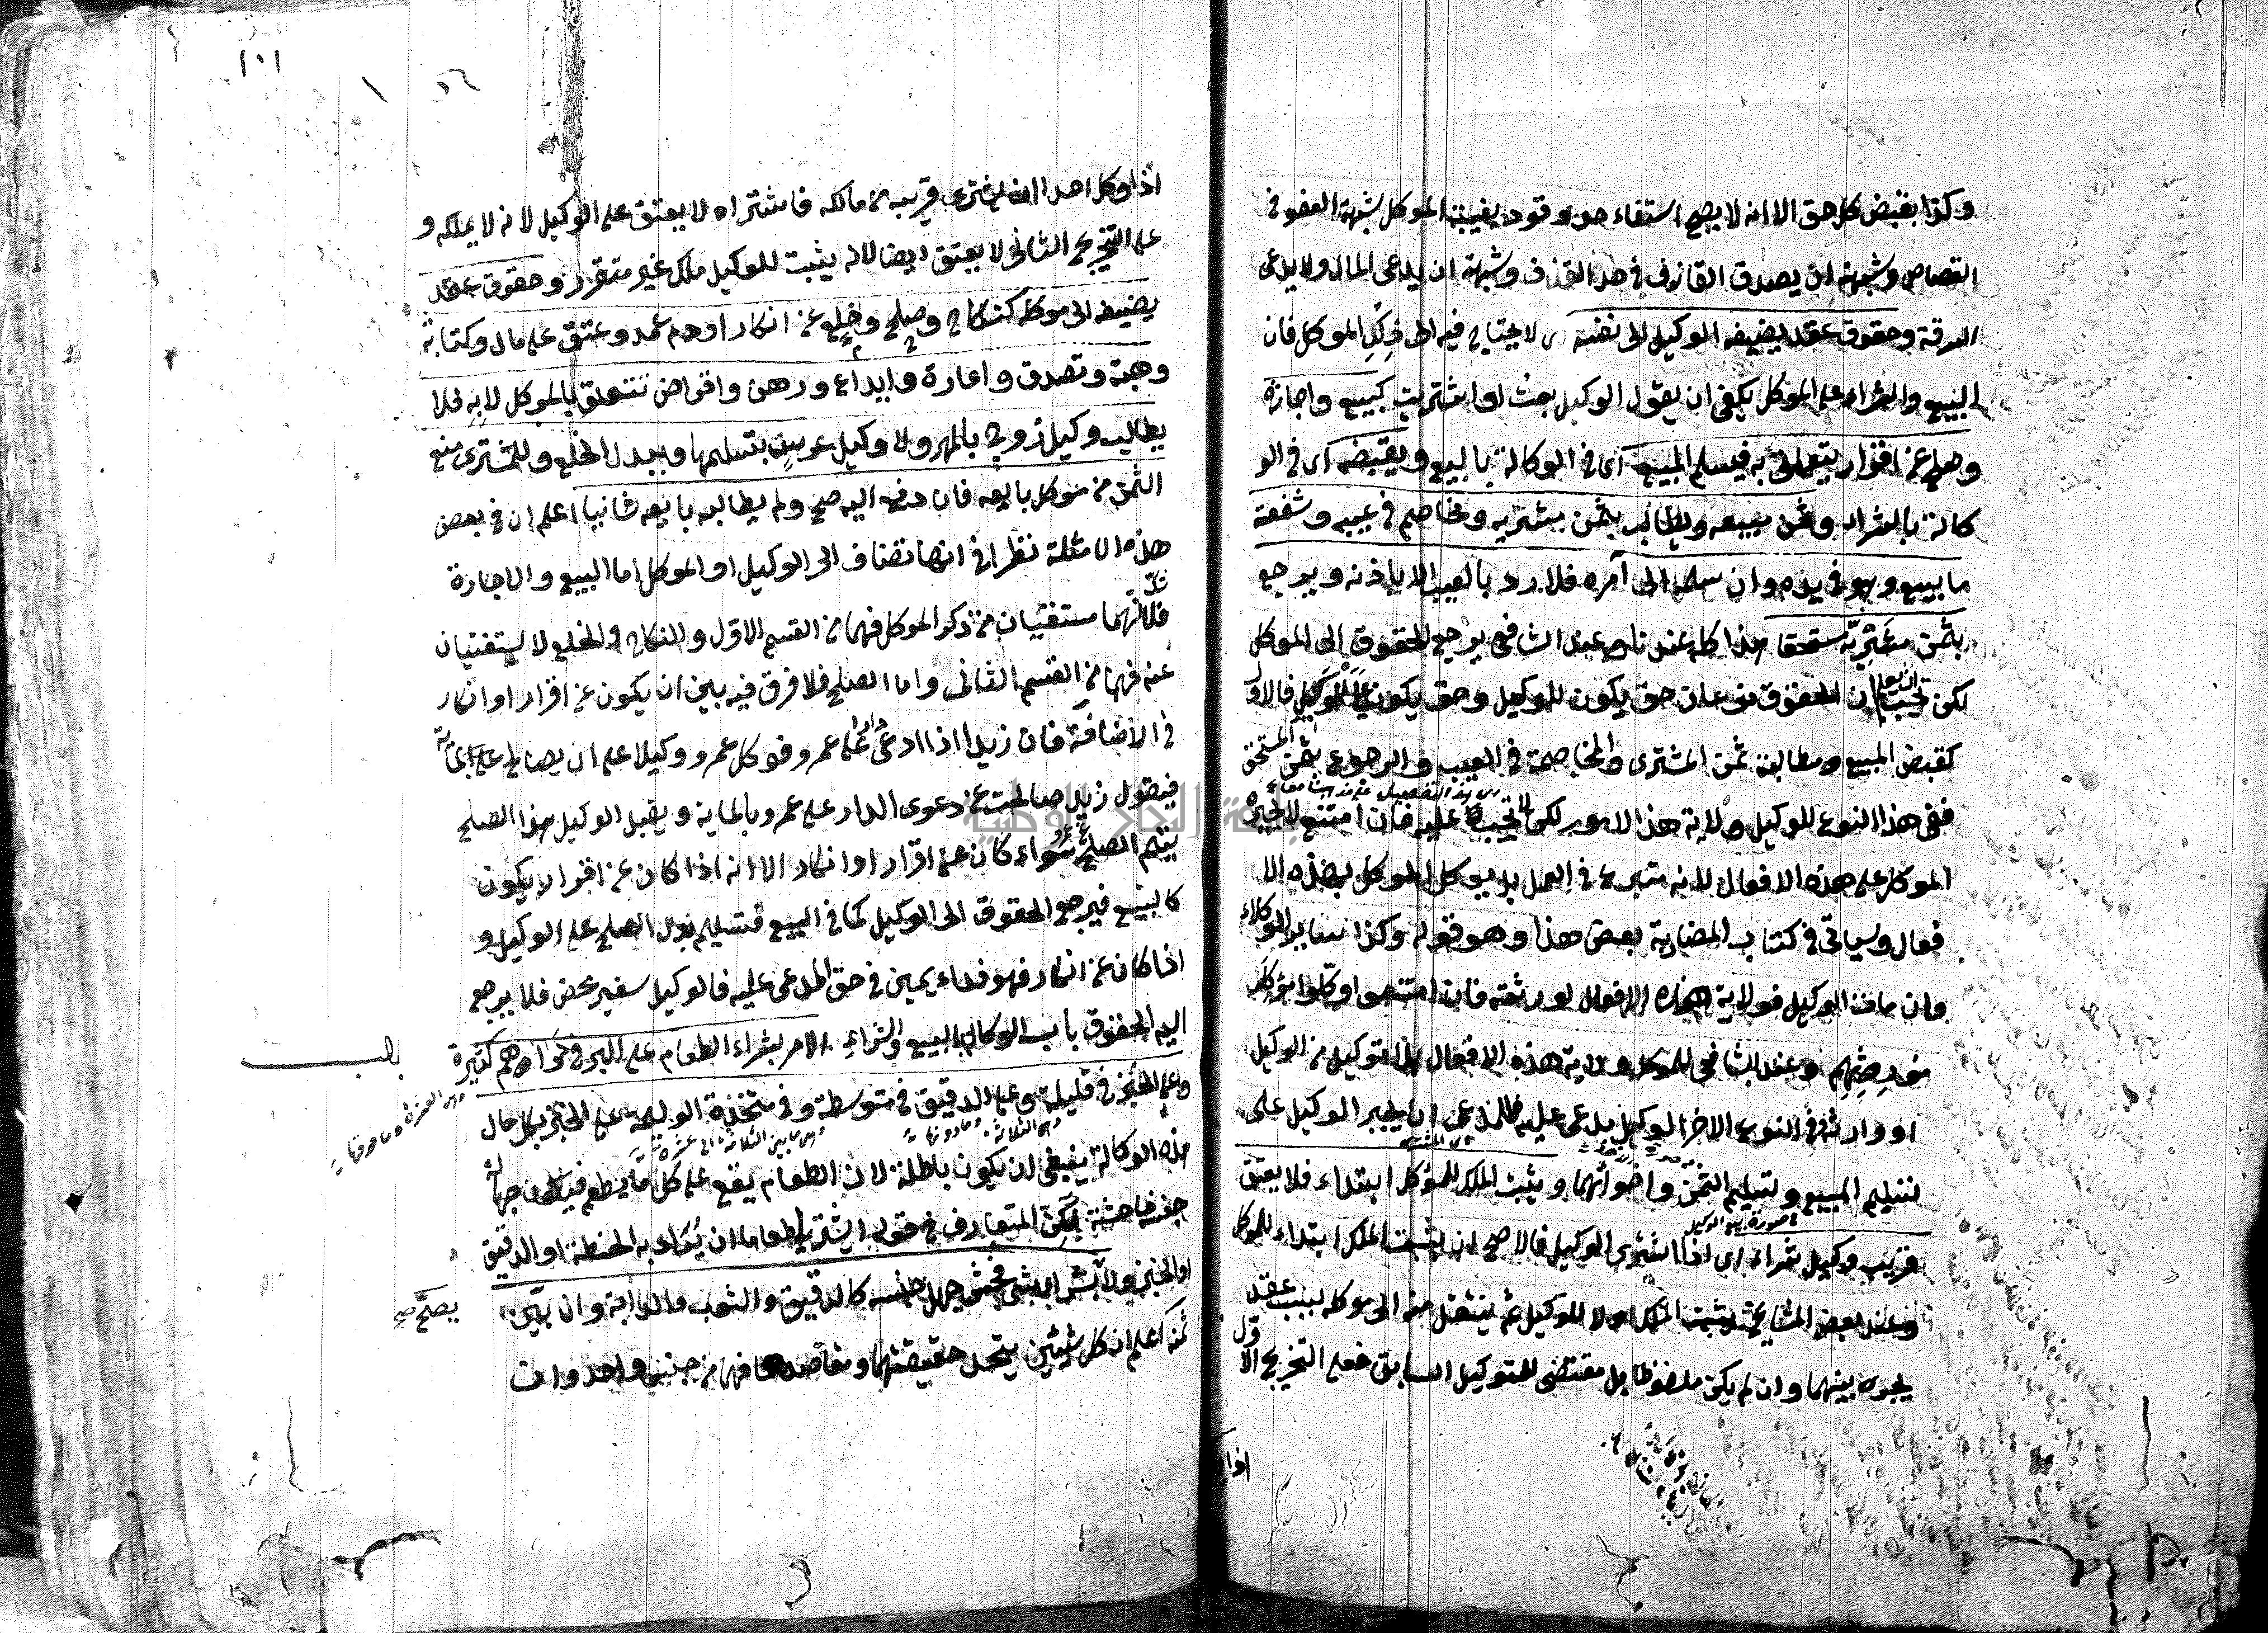 وكذا بقبض كل حق الا انه لا يصح استفاء حد وقود بغيبة الموكل لشبهة العفو في
القصاص وشبهة ان يصدق القاذف في حد القذف وشبهة ان يدعى المال ولا يدعى
السرقة وحقوق عقد يضيفه الوكيل الى نفسه اى لا يحتاج فيه الى ذكر الموكل فان
البيع والشراء على الموكل يكفى ان يقول الوكيل بعت او اشتريت كبيع واجارة
وصلح عن اقرار يتعلق به فيسلم المبيع اى في الوكالة بالبيع ويقبضه اى في الو
كالة بالشراء وثمن مبيعه ويطالب بثمن مشتريه ويخاصم في عيبه وشفعة
ما بيع وهو في يده وان سلمه الى آمره فلا رد بالعيب الا باذنه ويرجع
بثمن مشتريه مستحقا هذا كله عندنا وعند الشافعى يرجع الحقوق الى الموكل
لكن يجب ان يعلم ان الحقوق نوعان حق يكون للوكيل وحق يكون على الوكيل فالاول
كقبض المبيع ومطالبة ثمن المشترى والمخاصمة في العيب والرجوع بثمن المستحق
ففى هذا النوع للوكيل ولاية هذا الامور لكن لا يجب عليه فان امتنع لا يجبره
الموكل على هذه الافعال لانه متبرع في العمل بل يوكل الموكل بهذه الا
فعال وسياتى في كتاب المضاربة بعض هذا وهو قوله وكذا سائر الوكلاء
وان مات الوكيل فولاية هذه الافعال لورثته فان امتنعوا وكلوا موكل
مورثهم وعند الشافعى للموكل ولاية هذه الافعال بلا توكيل من الوكيل
او وارثه وفي النوع الاخر الوكيل مدعى عليه فللمدعى ان يجبر الوكيل على
تسليم المبيع وتسليم الثمن واخواتهما ويثبت الملك للموكل ابتداء فلا يعتق
في صورة بيع الوكيل
قريب وكيل شراه اى اذا اشترى الوكيل فالاصح ان يثبت الملك ابتداء للموكل
وعند بعض المشايخ يثبت الملك اولا للوكيل ثم ينتقل منه الى موكله بسبب عقد
يجرى بينهما وان لم يكن ملفوظا بل مقتضى للتوكيل السابق فعلى التخريج الاول
اذا
١٠١
اذا وكل احدا ان يشترى قريبه من مالكه فاشتراه لا يعتق على الوكيل لانه لا يملكه و
على التخريج الثانى لا يعتق ايضا لانه يثبت للوكيل ملك غير متقرر وحقوق عقد
يضيفه الى موكله كنكاح وصلح وخلع عن انكار او دم عمد وعتق على مال وكتابة
وهبة وتصدق واعارة وايداع ورهن واقراض تتعلق بالموكل لا به فلا
يطالب وكيل زوج بالمهر ولا وكيل عرس بتسليمها وببدل الخلع وللمشترى منع
الثمن من موكل بايعه فان دفع اليه صح ولم يطالبه بايعه ثانيا اعلم ان في بعض
هذه الامثلة نظر في انها تضاف الى الوكيل او الموكل اما البيع والاجارة
فلانهما مستغنيان عن ذكر الموكل فهما من القسم الاول والنكاح والخلع لا يستغنيان
عنه فهما من القسم الثانى واما الصلح فلا فرق فيه بين ان يكون عن اقرار او انكار
في الاضافة فان زيدا اذا ادعى دارا على عمرو فوكل عمرو وكيلا على ان يصالح على المائة
فيقول زيد صالحت عن دعوى الدار على عمرو بالماية ويقبل الوكيل هذا الصلح
يتم الصلح سواء كان عن اقرار او انكار الا انه اذا كان عن اقرار يكون
كالبيع فيرجع الحقوق الى الوكيل كما في البيع فتسليم بدل الصلح على الوكيل و
اذا كان عن انكار فهو فداء يمين في حق المدعى عليه فالوكيل سفير محض فلا يرجع
اليه الحقوق باب الوكالة بالبيع والشراء الامر بشراء الطعام على البر في دراهم كثيرة
باب
وعلى الخبز في قليلة وعلى الدقيق في متوسطة وفي متخذ الوليمة على الخبز بكل حال
وهى العشرة وما فوقها
وهى الثلاثة وما دونها
وهى ما بين الثلاثة الى عشرة
هذه الوكالة ينبغى ان يكون باطلة لان الطعام يقع على كل ما يطعم فيكون جهالة
جنسه فاحشة لكن المتعارف في قوله اشتر لى طعاما ان يراد به الحنطة او الدقيق
او الخبز ولا بشراء شئ فحش جهل جنسه كالرقيق والثوب والدابة وان بين
يصح صح
ثمنه اعلم ان كل شيئين يتحد حقيقتهما ومقاصدهما فهما من جنس واحد وان